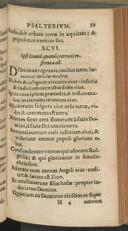 PSALTERIVM.
Iudicabit orbem terræ in æquitate: &
populos in veritate sua.
XCVI.
Ipsi David, quando terra eius
restituta est.
Dominus regnavit, exultet terra: læ-
tentur insulæ multæ.
Nubes & caligo in circuitu eius: iustitia
& iudicium correctio sedis eius.
Ignis ante ipsum præcedet, & inflamma-
bit in circuitu inimicos eius.
fulgura eius orbi terræ: vi-
dit, & commota est terra.
Montes sicut cera fluxerunt a facie Do-
mini: a facie Domini omnis terra.
Annuntiaverunt cæli iustitiam eius, &
viderunt omnes populi gloriam e-
ius.
Confundantur omnes qui adorant scul-
ptilia: & qui gloriantur in simula-
chris suis.
Adorate eum omnes Angeli eius: audi-
vit & lætata est Sion.
Et exultaverunt filiæ Iudæ: propter iu-
dicia tua Domine.
Quoniam tu Dominus altissimus super
omnem